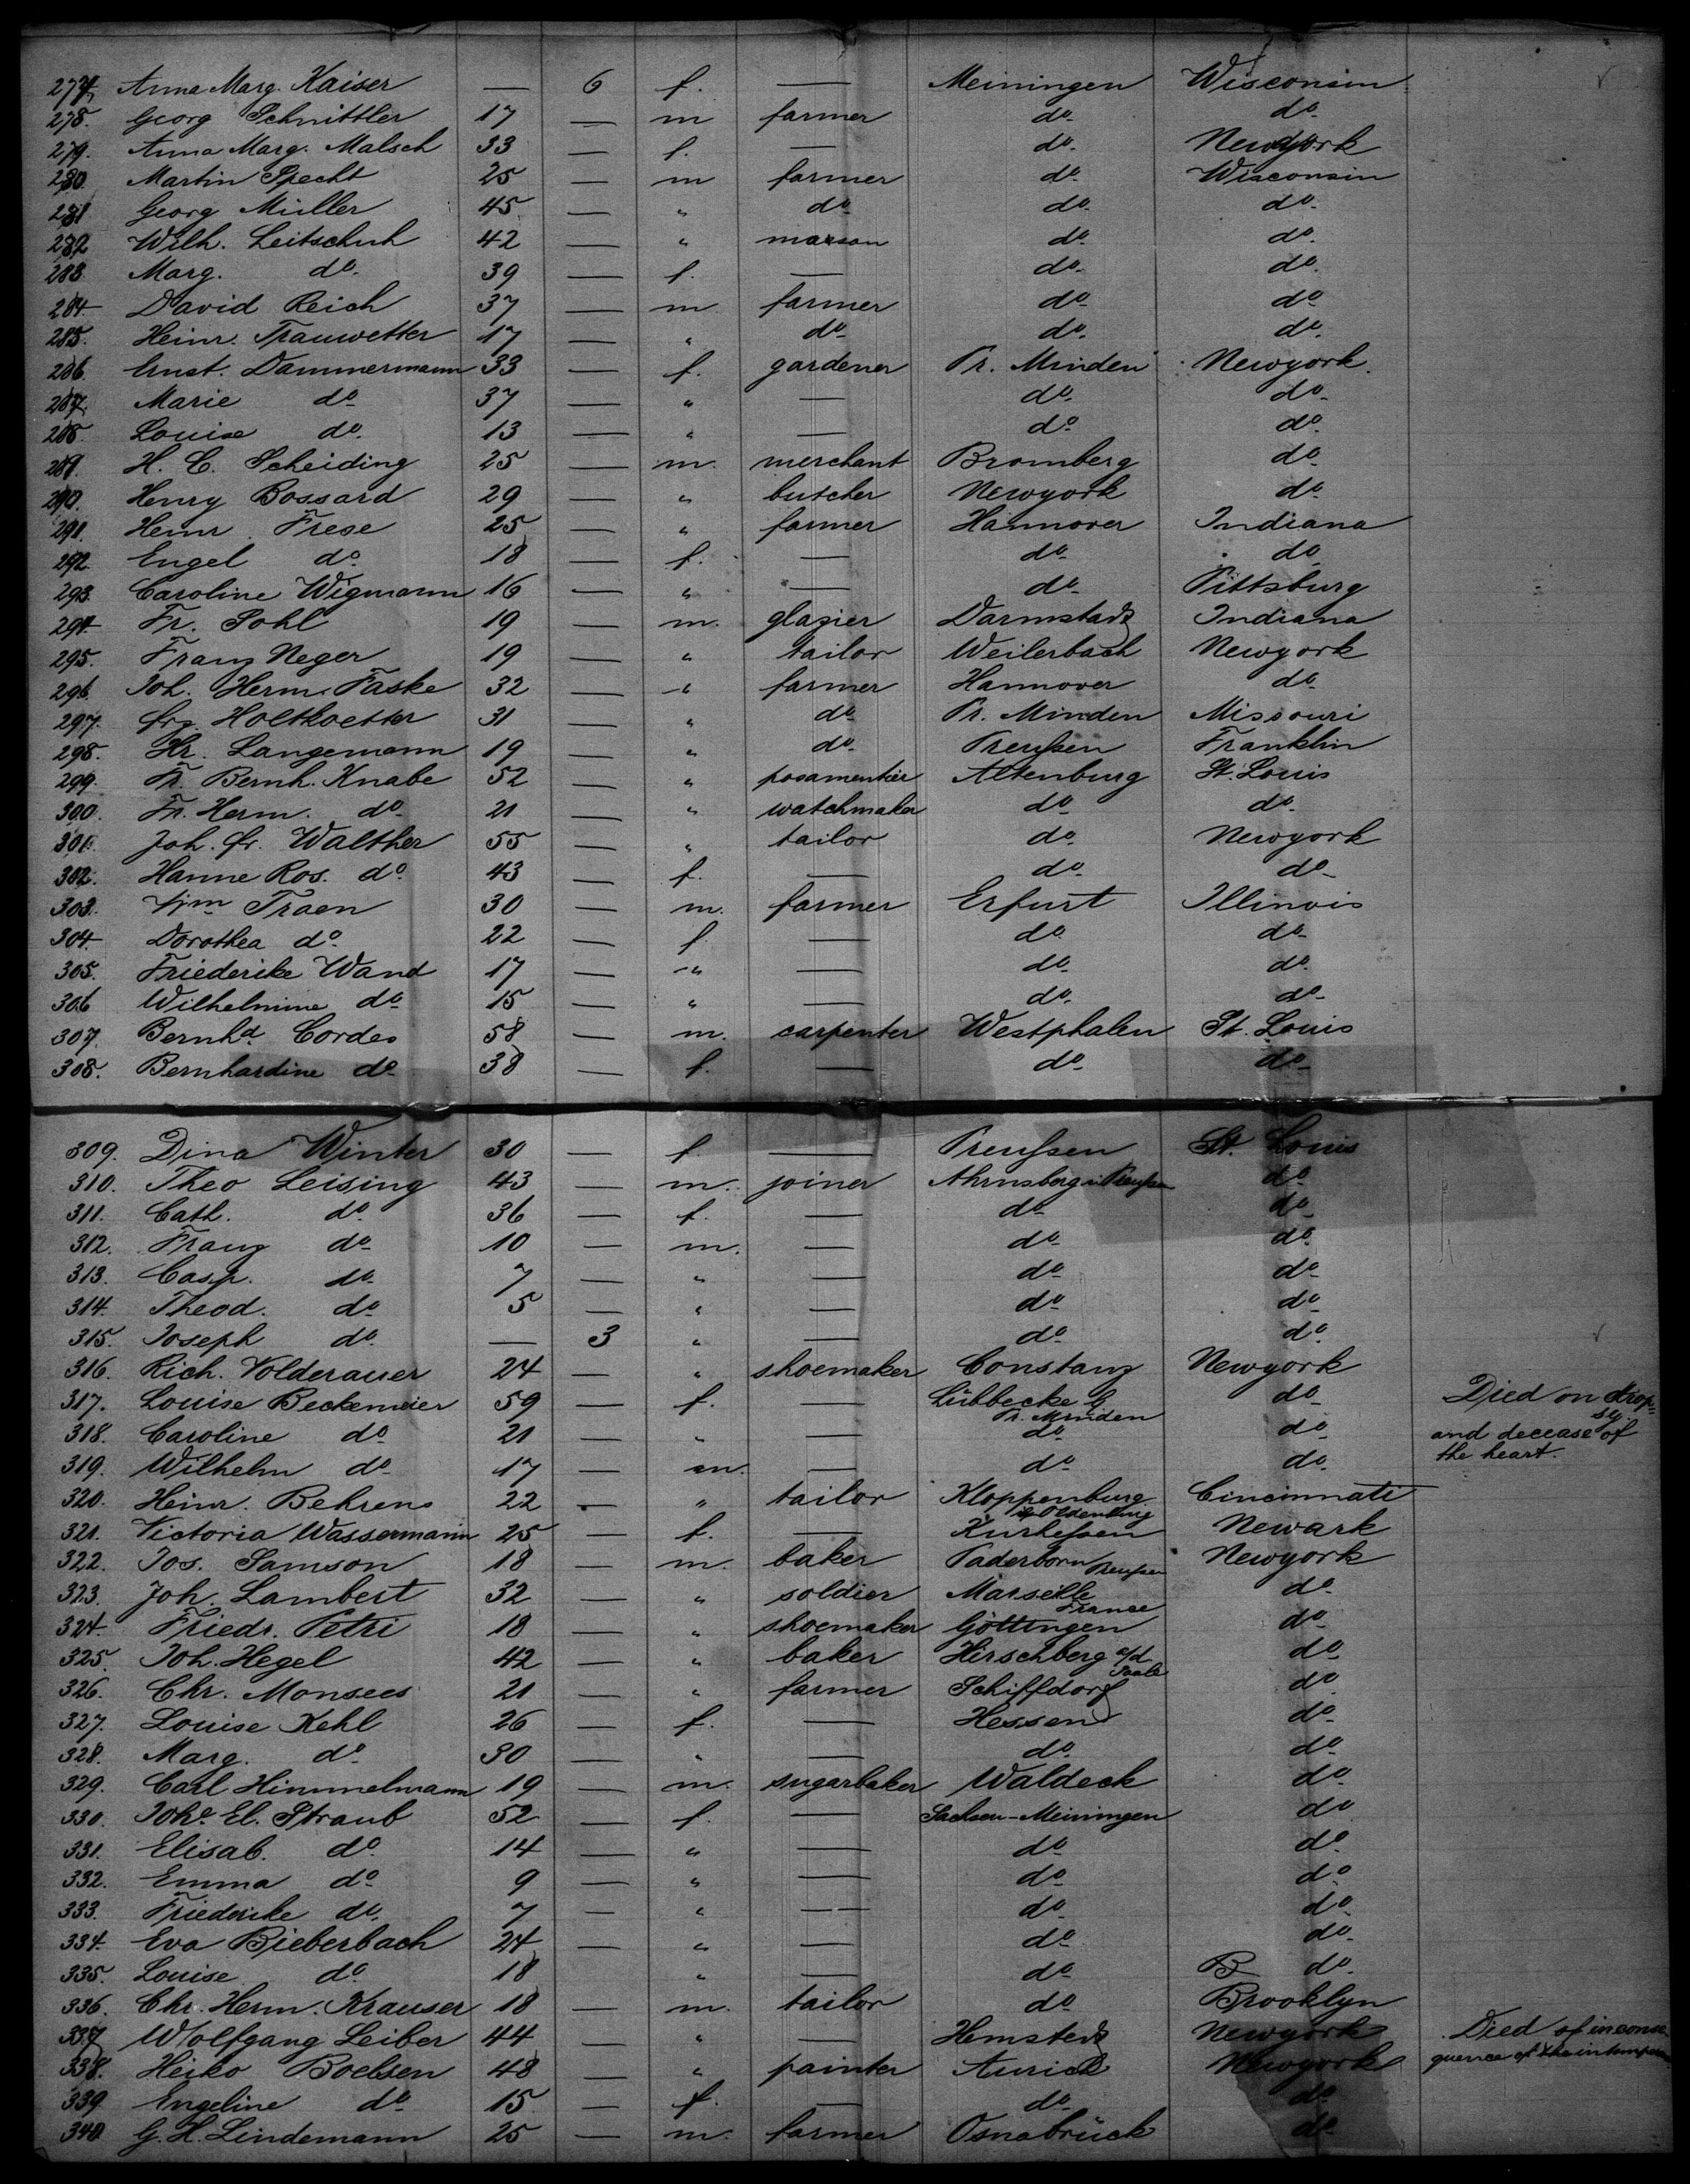 277. Anna Marg. Kaiser — 6 f. — Meiningen Wisconsin
278. Georg Schnittler 17 — m farmer do. do.
279. Anna Marg. Malsch 33 — f. — do. Newyork
280. Martin Specht 25 — m farmer do. Wisconsin
281 Georg Müller 45 — " do. do. do.
282 Wilh. Leitschuh 42 — " mason do. do.
283. Marg. do. 39 — f. — do. do.
284. David Reich 37 — m. farmer do. do.
285. Heinr. Trauwetter 17 — " do. do. do.
286. Ernst. Dammermann 33 — f. gardener Pr. Minden Newyork
287. Marie do. 37 — " — do. do.
288. Louise do. 13 — " — do. do.
289. H. C. Scheiding 25 — m. merchant Bromberg do.
290. Henry Bossard 29 — " butcher Newyork do.
291. Heinr. Frese 25 — " farmer Hannover Indiana
292. Engel do. 18 — f. — do. do.
293. Caroline Wigmann 16 — " — do. Pittsburg
294. Fr. Pohl 19 — m. glazier Darmstadt Indiana
295. Franz Neger 19 — " tailor Weilerbach Newyork
296. Joh. Herm. Faske 32 — " farmer Hannover do.
297. Holtkoetter 31 — " do. Pr. Minden Missouri
298. Hr. Langemann 19 — " do. Preußen Franklin
299. Fr. Bernh. Knabe 52 — " posamentier Altenburg St. Louis
300. Fr. Herm. do. 21 — " watchmaker do. do.
301. Joh. Fr. Walther 55 — " tailor do. Newyork
302. Hanne Ros. do. 43 — f. — do. do.
303. Wm Traen 30 — m. farmer Erfurt Illinois
304. Dorothea do. 22 — f — do. do.
305. Friederike Wand 17 — " — do. do.
306 Wilhelmine do. 15 — " — do. do.
307. Bernhd. Cordes 58 — m. carpenter Westphalen St. Louis
308. Bernhardine do. 38 — f. — do. do.
309. Dina Winter 30 — f. — Preußen St. Louis
310. Theo Leising 43 — m. joiner Ahrnsberg i. Preußen do.
311. Cath. do. 36 — f. — do. do.
312. Franz do. 10 — m. — do. do.
313. Casp. do. 7 — " — do. do.
314. Theod. do. 5 — " — do. do.
315. Joseph do. — 3 " — do. do.
316. Rich. Volderauer 24 — " shoemaker Constanz Newyork
317. Louise Beckemeier 59 — f. — Lübbecke do. Died on drop-
Pr. Minden sy
318. Caroline do. 21 — " — do. do. and decease of
319. Wilhelm do. 17 — m. — do. do. the heart.
320. Heinr. Behrens 22 — " tailor Kloppenburg Cincinnati
Oldenburg
321. Victoria Wassermann 25 — f. — Kurheßen Newark
322. Jos. Samson 18 — m. baker Paderborn Preußen Newyork
323. Joh. Lambert 32 — " soldier Marseille do.
France
324. Friedr. Petri 18 — " shoemaker Göttingen do.
325. Joh. Hegel 42 — " baker Hirschberg a/d do.
Saale
326. Chr. Monsees 21 — " farmer Schiffdorf do.
327. Louise Kehl 26 — f. — Hessen do.
328. Marg. do. 30 — " — do. do.
329. Carl Himmelmann 19 — m. sugarbaker Waldeck do.
330. Johe. El. Straub 52 — f. — Sachsen-Meiningen do.
331. Elisab. do. 14 — " — do. do.
332. Emma do. 9 — " — do. do.
333. Friederike do. 7 — " — do. do.
334. Eva Bieberbach 24 — " — do. do.
335. Louise do. 18 — " — do. B do.
336. Chr. Herm. Krauser 18 — m. tailor do. Brooklyn
337. Wolfgang Leiber 44 — " — Hemstedt Newyork Died of in conse-
338. Heiko Boelsen 48 — " painter Aurich Newyork quence of the
339. Engeline do. 15 — f. — do. do.
340. G. H. Lindemann 25 — m. farmer Osnabrück do.